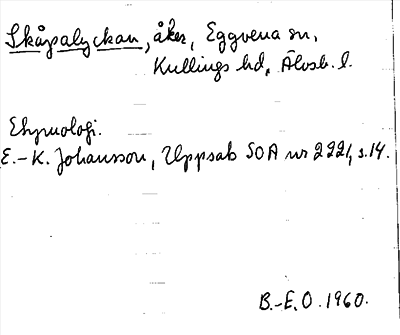 Skåpalyckan, åker, Eggvena sn,
Kullings hd, Älvsb. l.
Etymologi.
E.-K. Johansson, Uppsats SOA nr 2221, s.14.
B.-E. O. 1960.